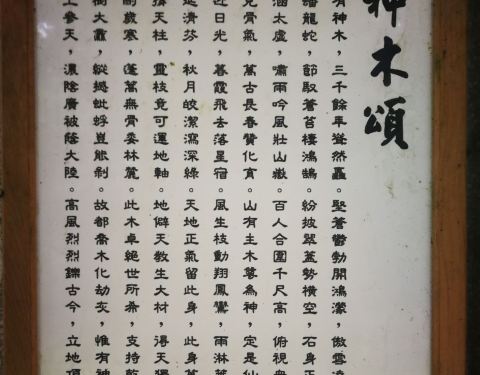 神木頌
有神木，三千餘年聳然矗。堅蒼鬱勃開鴻濛，傲雲凌
蟠龍蛇，節馭蒼苔棲鴻鵠。紛披翠蓋勢橫空，石身正
涵太虛，嘯雨吟風壯山嶽。百人合圍千尺高，俯視眾
見骨氣，萬古長春贊化育。山有主木為神，定是仙
近日光，暮霞飛去落星宿。風生枝動翔鳳鸞，雨淋葉
清芬，秋月皎潔瀉深綠。天地正氣留此身，此身萬
天柱，靈枝竟可運地軸。地僻天教生大材，得天獨
歲寒，蓬無骨委林麓。此木卓絕世所希，支持乾
樹大，縱撼蚍蜉豈能剝。故都喬木化劫灰，惟有神
上參天，濃陰廣被蔭大陸。高風烈烈鑠古今，立地頂